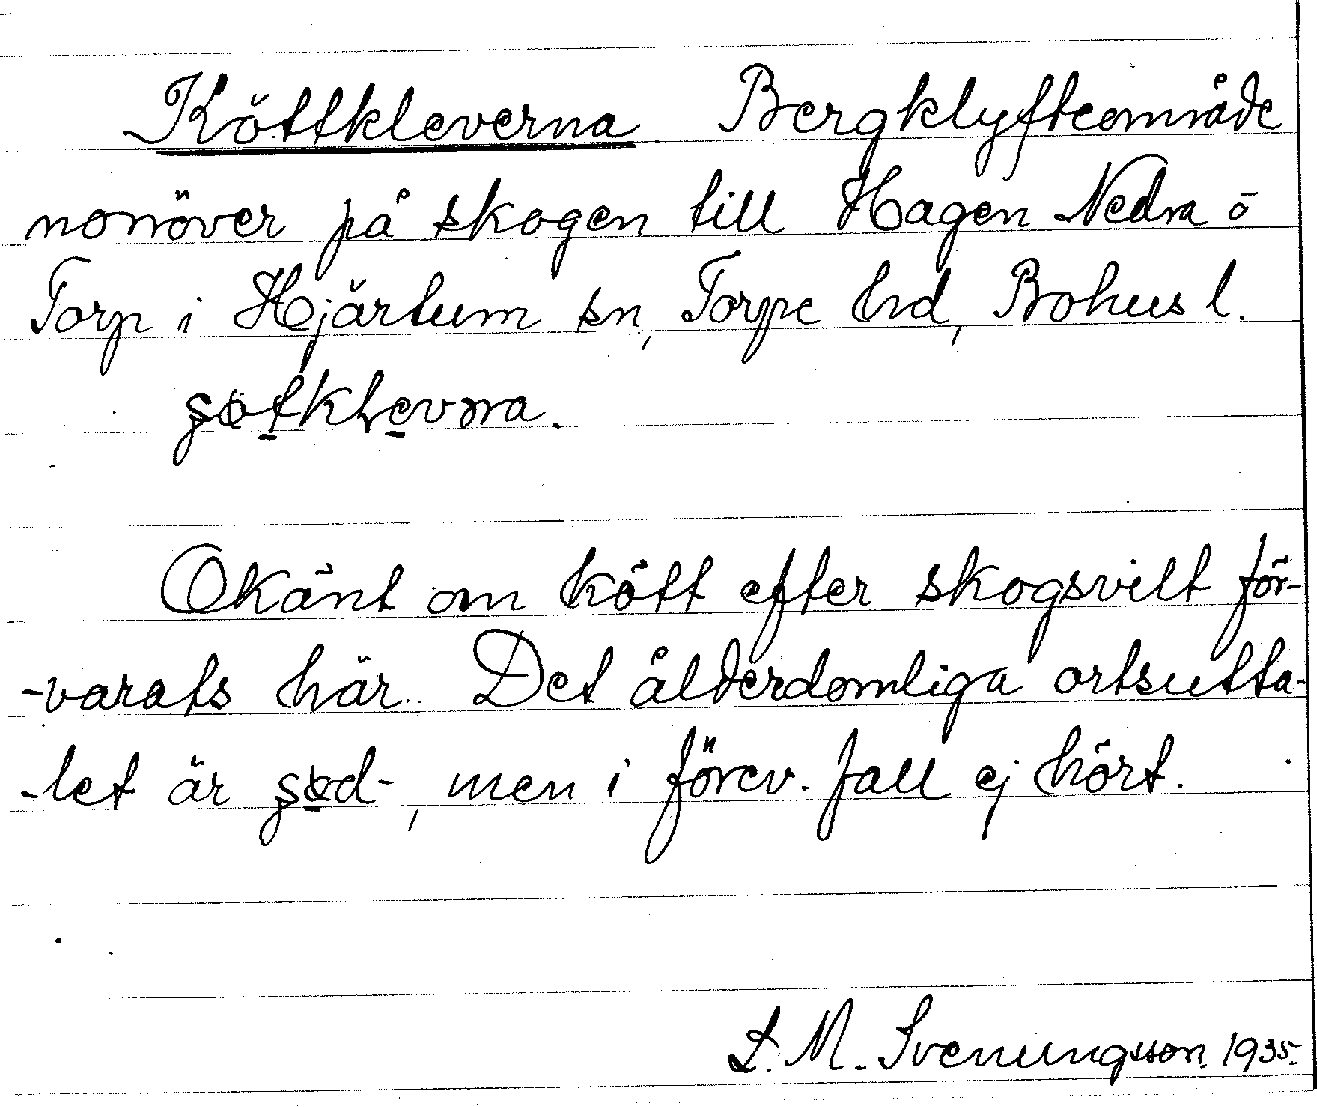 Köttkleverna Bergklyfteområde
norröver på skogen till Hagen Nedra ö
Torp i Hjärtum sn, Torpe hd, Bohus l.
Okänt om kött efter skogsvilt för-
-varats här. Det ålderdomliga ortsutta-
-let är , men i förev. fall ej hört.
L. M. Svenungsson. 1935.